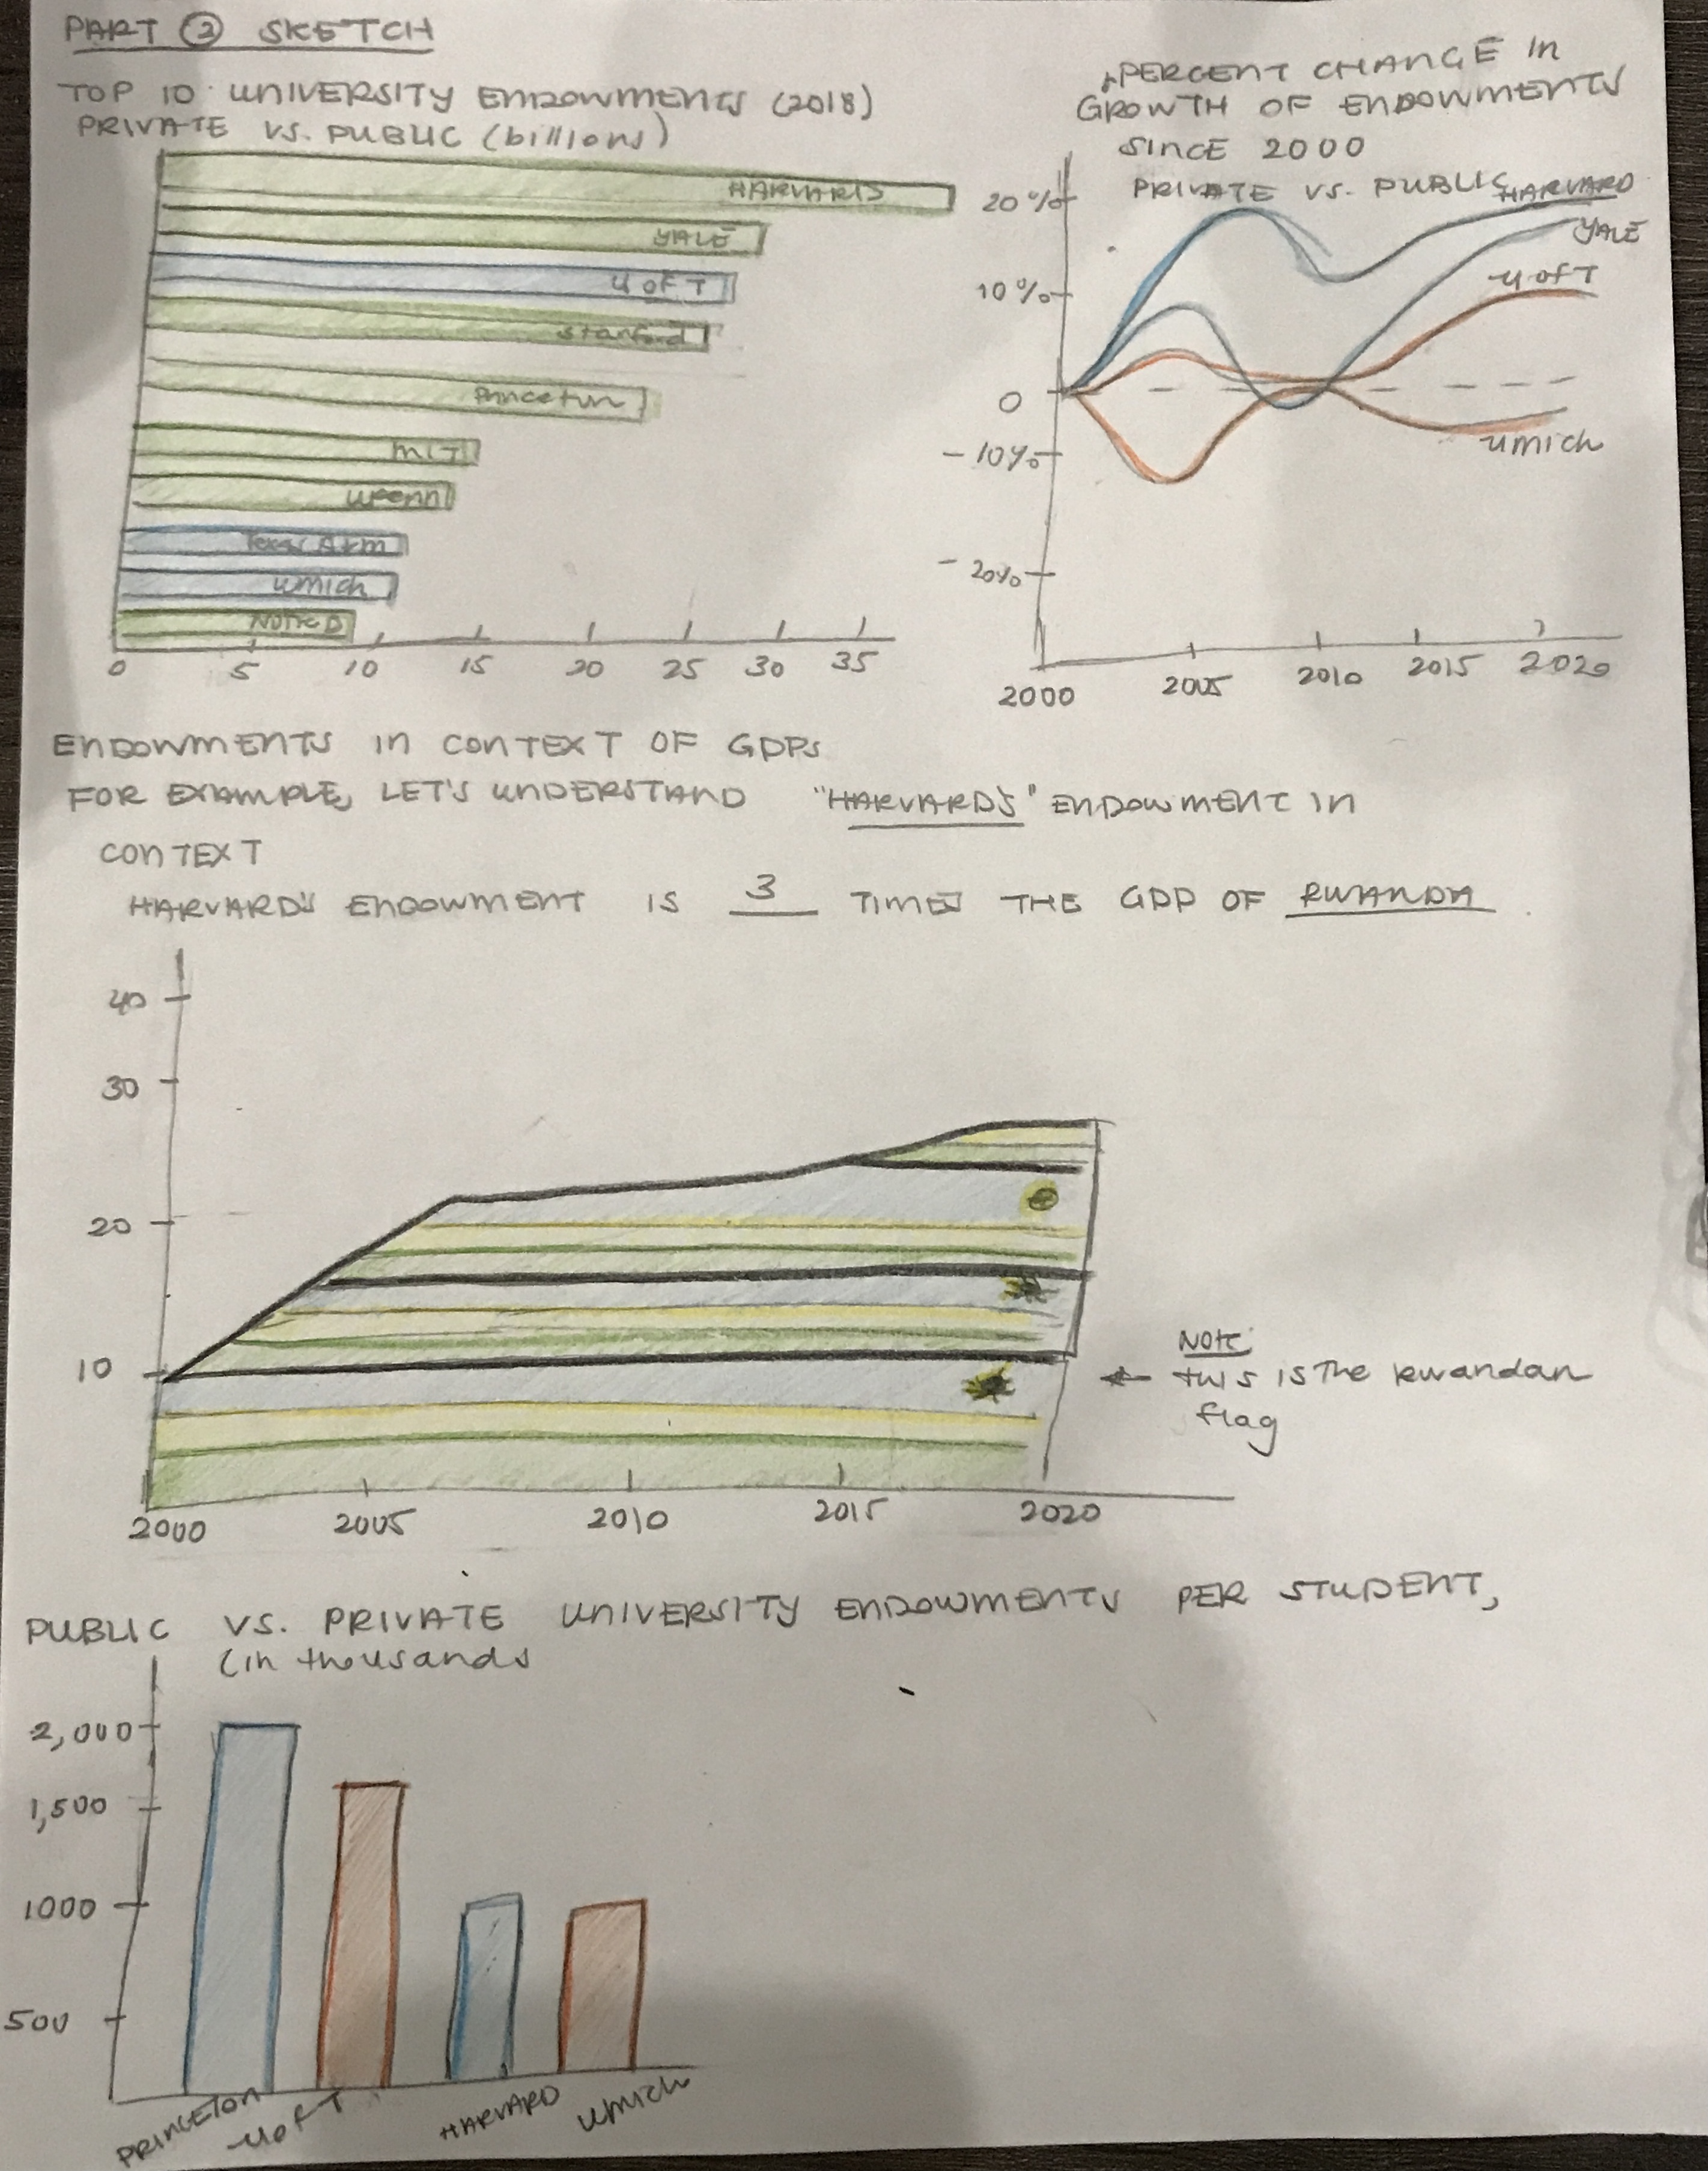 PART ② SKETCH
TOP 10 UNIVERSITY ENDOWMENTS (2018)
PRIVATE VS. PUBLIC (billions)
HARVARD
YALE
U OF T
Stanford
Princeton
MIT
UPenn
Texas A&M
UMich
Notre D
0 5 10 15 20 25 30 35
PERCENT CHANGE IN
GROWTH OF ENDOWMENTS
SINCE 2000
PRIVATE VS. PUBLIC
HARVARD
YALE
U OF T
UMich
20%
10%
0
-10%
-20%
2000 2005 2010 2015 2020
ENDOWMENTS IN CONTEXT OF GDPs
FOR EXAMPLE, LET'S UNDERSTAND "HARVARD'S" ENDOWMENT IN
CONTEXT
HARVARD'S ENDOWMENT IS 3 TIMES THE GDP OF RWANDA.
40
30
20
10
2000 2005 2010 2015 2020
Note:
← this is the rwandan
flag
PUBLIC VS. PRIVATE UNIVERSITY ENDOWMENTS PER STUDENT,
(in thousands
2,000
1,500
1000
500
PRINCETON U OF T HARVARD UMich